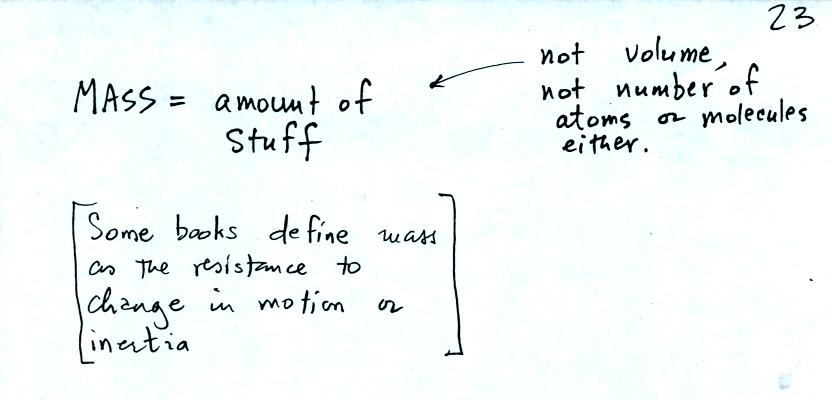 23
MASS = amount of
stuff
not volume,
not number of
atoms or molecules
either.
Some books define mass
as the resistance to
change in motion or
inertia